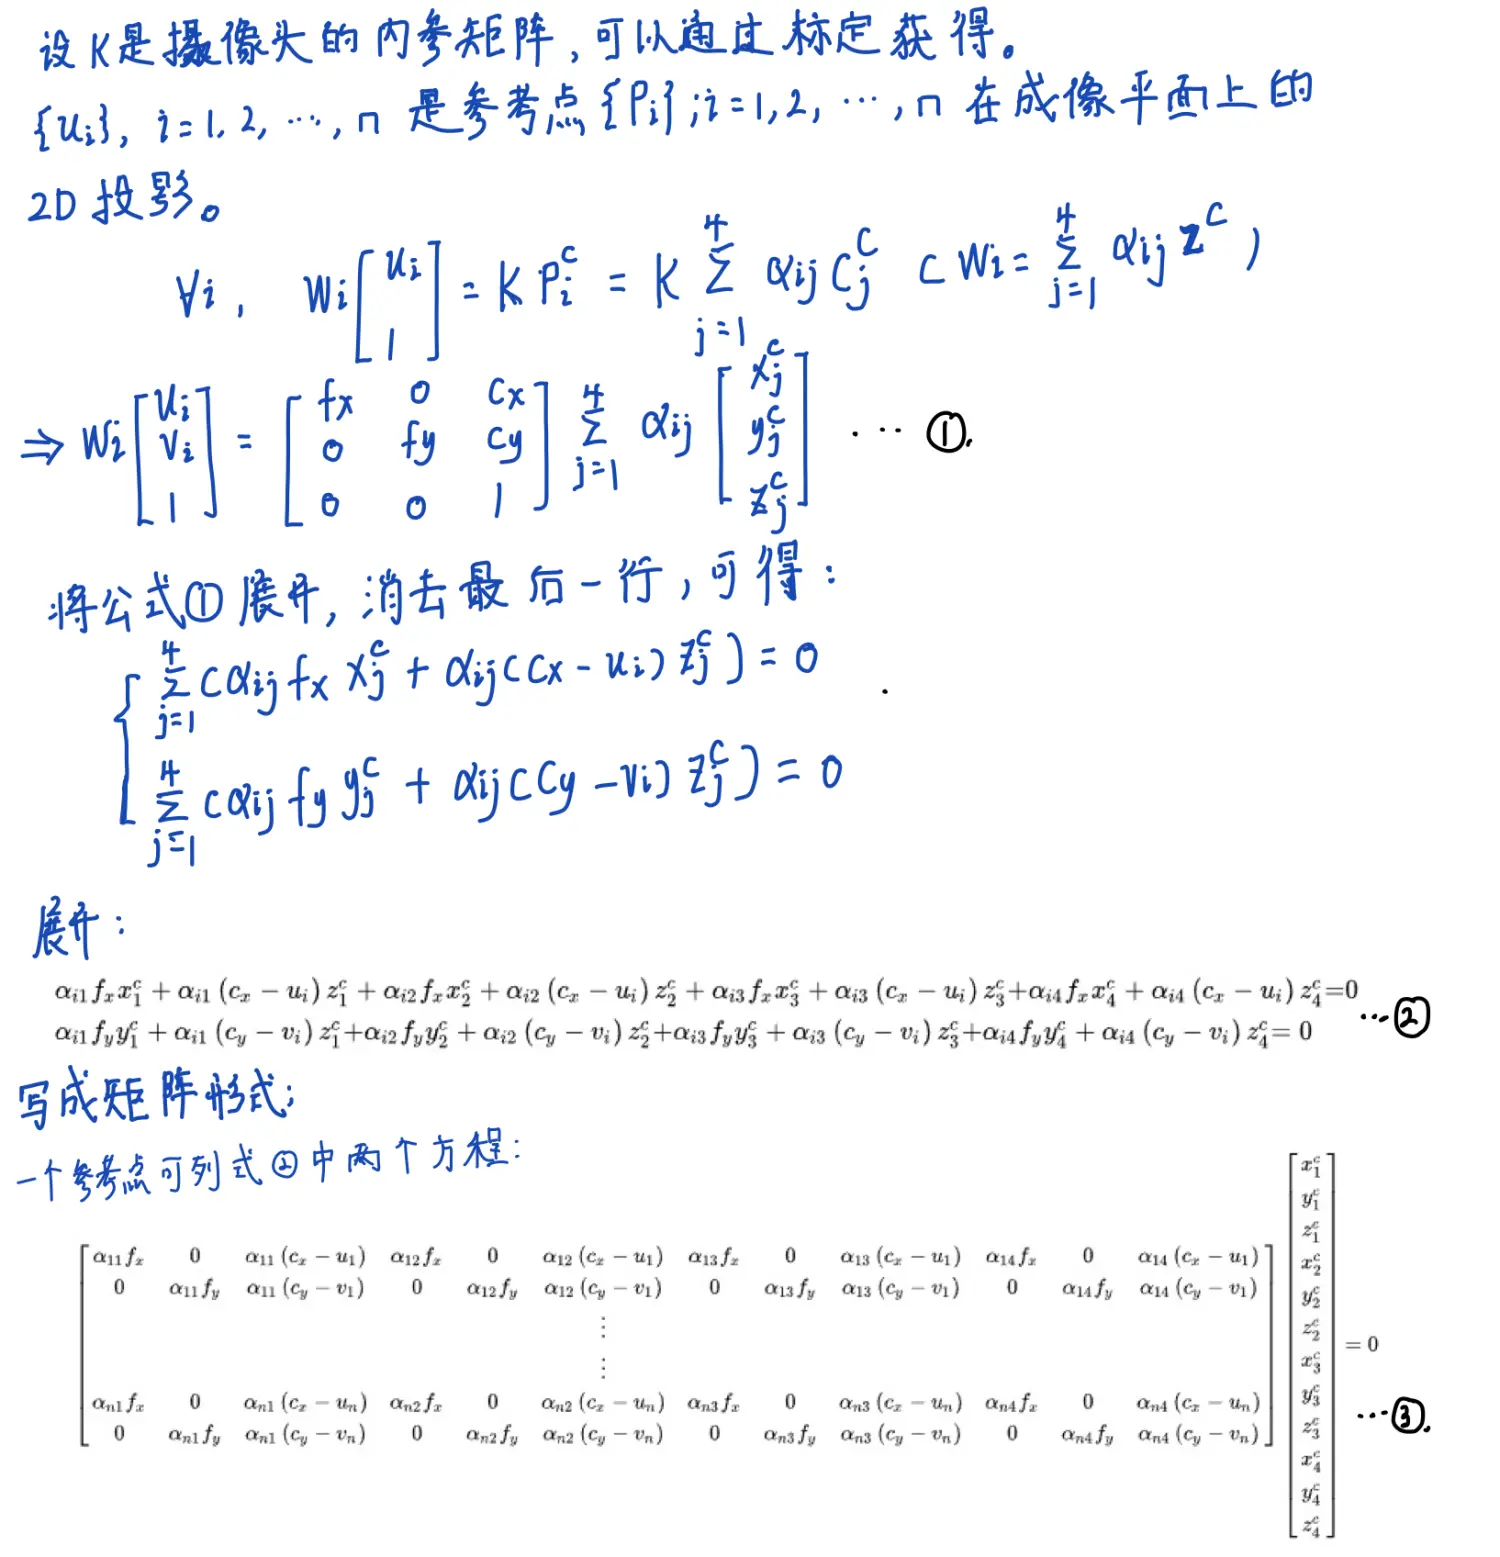 设K是摄像头的内参矩阵,可以通过标定获得。
{u_i}, i=1,2,…,n 是参考点{P_i};i=1,2,…,n 在成像平面上的
2D投影。
∀i, w_i [u_i; 1] = K P_i^c = K Σ_{j=1}^4 α_ij C_j^c (w_i = Σ_{j=1}^4 α_ij z^c)
⇒ w_i [u_i; v_i; 1] = [f_x 0 c_x; 0 f_y c_y; 0 0 1] Σ_{j=1}^4 α_ij [x_j^c; y_j^c; z_j^c] … ①.
将公式①展开,消去最后一行,可得:
Σ_{j=1}^4 (α_ij f_x x_j^c + α_ij (c_x - u_i) z_j^c) = 0
Σ_{j=1}^4 (α_ij f_y y_j^c + α_ij (c_y - v_i) z_j^c) = 0
展开:
α_i1 f_x x_1^c + α_i1 (c_x − u_i) z_1^c + α_i2 f_x x_2^c + α_i2 (c_x − u_i) z_2^c + α_i3 f_x x_3^c + α_i3 (c_x − u_i) z_3^c + α_i4 f_x x_4^c + α_i4 (c_x − u_i) z_4^c = 0
α_i1 f_y y_1^c + α_i1 (c_y − v_i) z_1^c + α_i2 f_y y_2^c + α_i2 (c_y − v_i) z_2^c + α_i3 f_y y_3^c + α_i3 (c_y − v_i) z_3^c + α_i4 f_y y_4^c + α_i4 (c_y − v_i) z_4^c = 0 …②
写成矩阵形式:
一个参考点可列式②中两个方程:
α_11 f_x 0 α_11 (c_x − u_1) α_12 f_x 0 α_12 (c_x − u_1) α_13 f_x 0 α_13 (c_x − u_1) α_14 f_x 0 α_14 (c_x − u_1)
0 α_11 f_y α_11 (c_y − v_1) 0 α_12 f_y α_12 (c_y − v_1) 0 α_13 f_y α_13 (c_y − v_1) 0 α_14 f_y α_14 (c_y − v_1)
⋮
⋮
α_n1 f_x 0 α_n1 (c_x − u_n) α_n2 f_x 0 α_n2 (c_x − u_n) α_n3 f_x 0 α_n3 (c_x − u_n) α_n4 f_x 0 α_n4 (c_x − u_n)
0 α_n1 f_y α_n1 (c_y − v_n) 0 α_n2 f_y α_n2 (c_y − v_n) 0 α_n3 f_y α_n3 (c_y − v_n) 0 α_n4 f_y α_n4 (c_y − v_n)
x_1^c
y_1^c
z_1^c
x_2^c
y_2^c
z_2^c
x_3^c
y_3^c
z_3^c
x_4^c
y_4^c
z_4^c
= 0
…③.